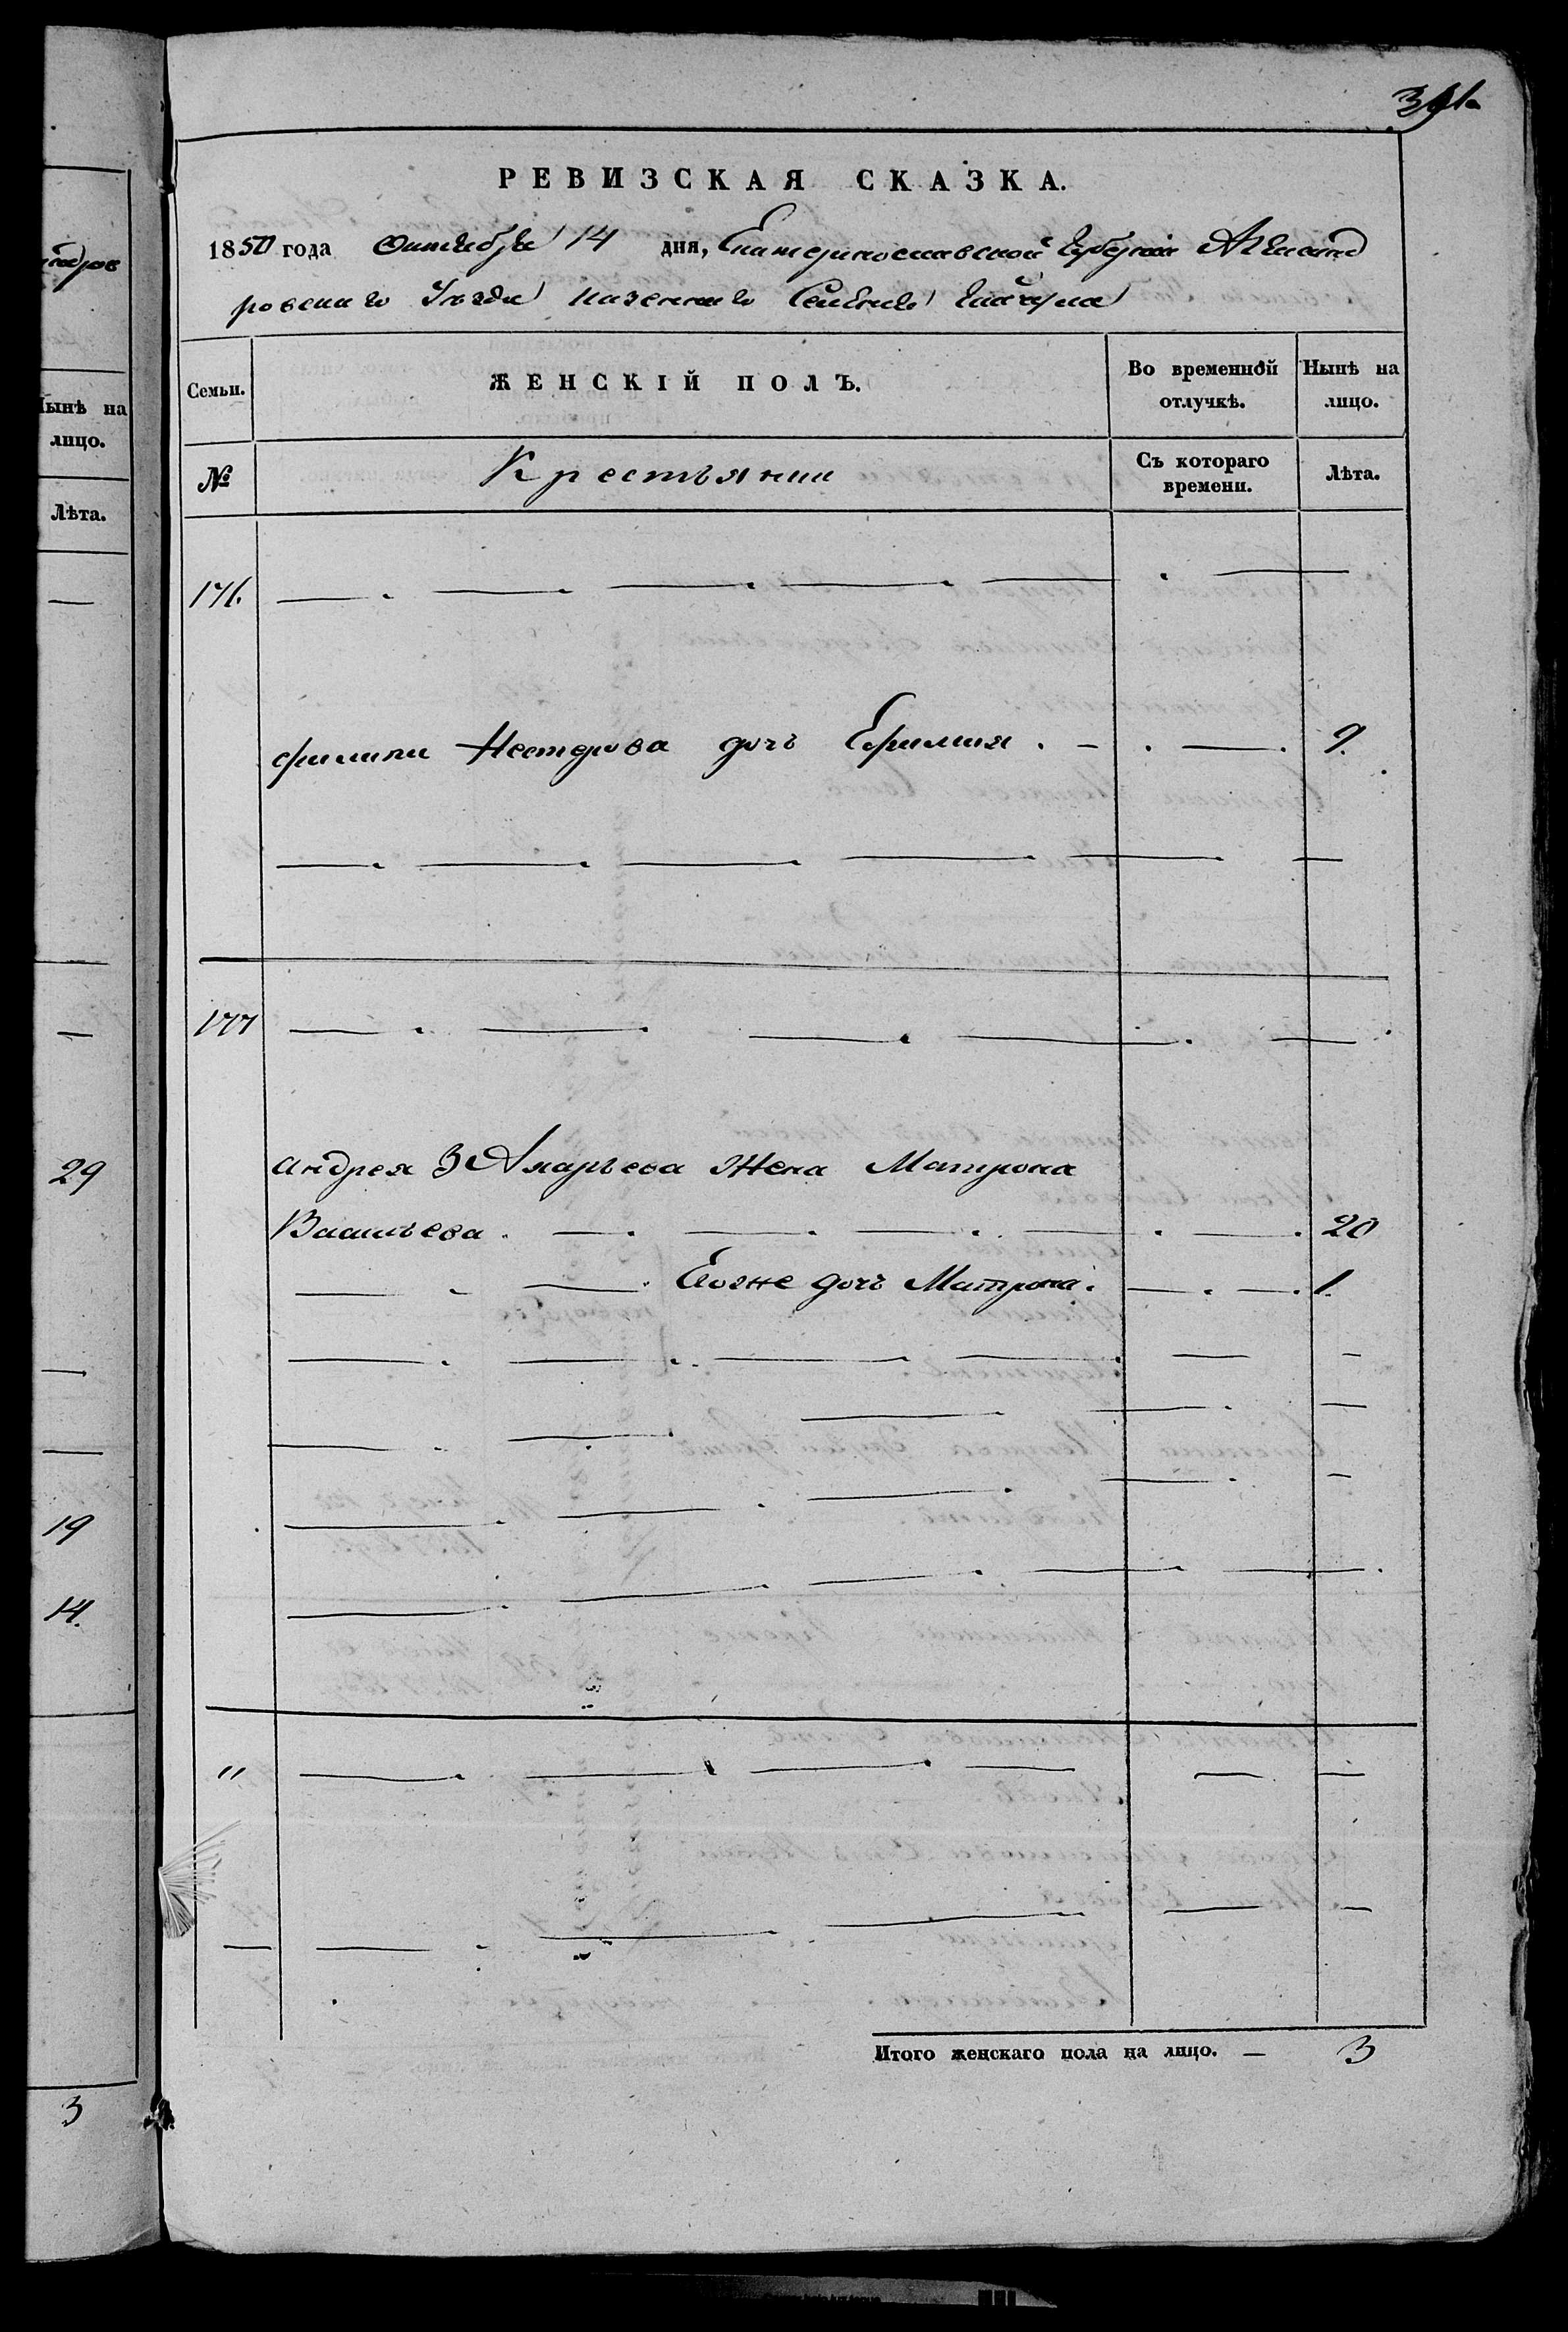 391
РЕВИЗСКАЯ СКАЗКА.
1850 года Октября 14 дня, Екатеринославской Губернии Александ
ровскаго Уезда казеннаго Селения
Семьи. ЖЕНСКІЙ ПОЛЪ. Во временной отлучкѣ. Нынѣ на лицо.
№ Крестьянии Съ котораго времени. Лѣта.
176.
Нестерова дочь Ефимия. 9.
177
андрея Жена Матрона
Васильева. 20
Егоже дочь Матрона. 1.
"
Итого женскаго пола на лицо. — 3
ндров
Нынѣ на
лицо.
Лѣта.
29
19
14.
3